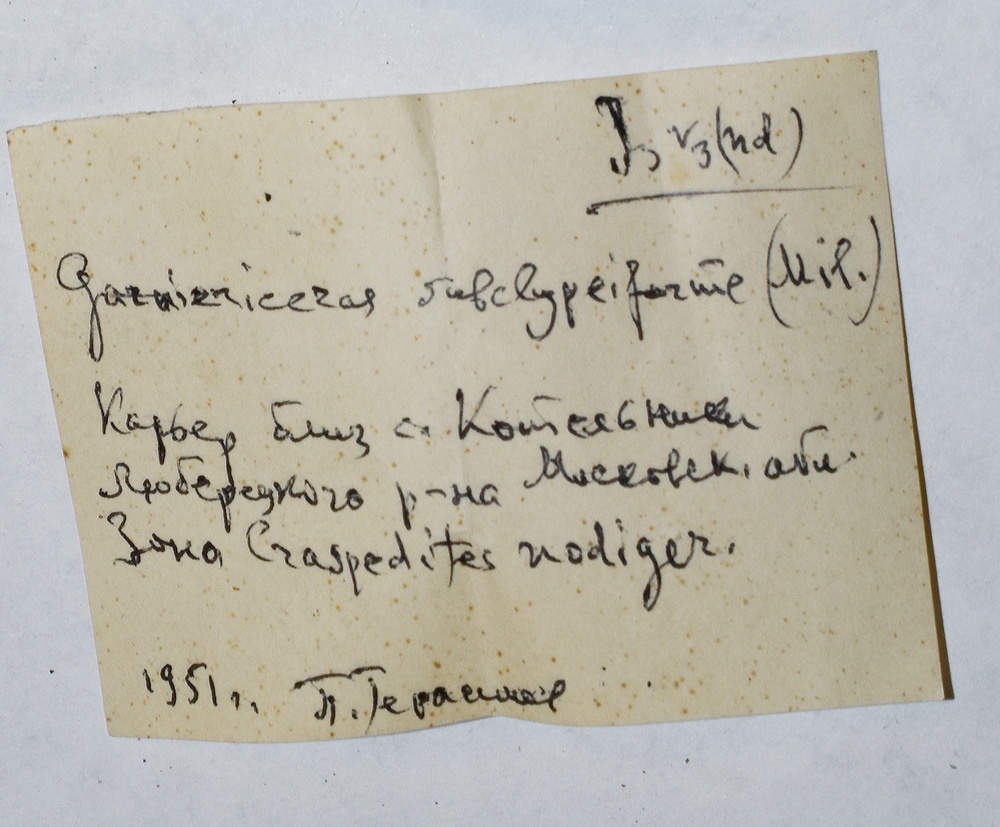 J₃ v₃(nd)
Garniericeras subclypeiforme (Mil.)
Карьер близ с. Котельники
Люберецкого р-на Московск. обл.
Зона Craspedites nodiger.
1951 г. П. Герасимов